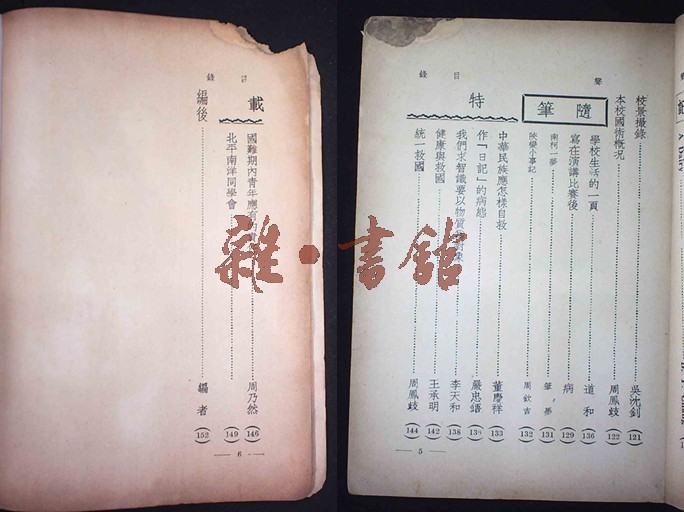 聲
目錄
校景撮錄 吳沈釗 (121)
本校國術概况 周鳳岐 (122)
隨筆
學校生活的一頁 道和 (136)
寫在演講比賽後 病 (129)
南柯一夢 (131)
陝變小事記 周欽吉 (132)
特
中華民族應怎樣自救 董慶祥 (133)
作「日記」的病態 嚴忠語
我們求智識要以物質 李天和 (138)
健康與救國 王承明 (142)
統一救國 周鳳岐 (144)
5
錄
載
國難期內青年應有 周乃然 (146)
北平南洋同學會 (149)
編後 編者 (152)
6
雜·書館